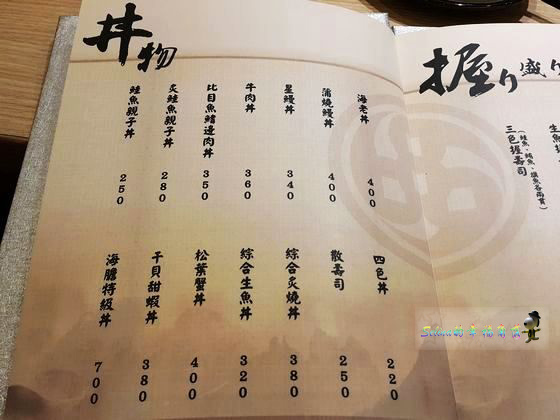 丼物
海老丼 400
蒲燒鰻丼 400
星鰻丼 340
牛肉丼 360
比目魚鰭邊肉丼 350
炙鮭魚親子丼 280
鮭魚親子丼 250
四色丼 220
散壽司 250
綜合炙燒丼 380
綜合生魚丼 320
松葉蟹丼 400
干貝甜蝦丼 380
海膽特級丼 700
握り盛り
三色握壽司